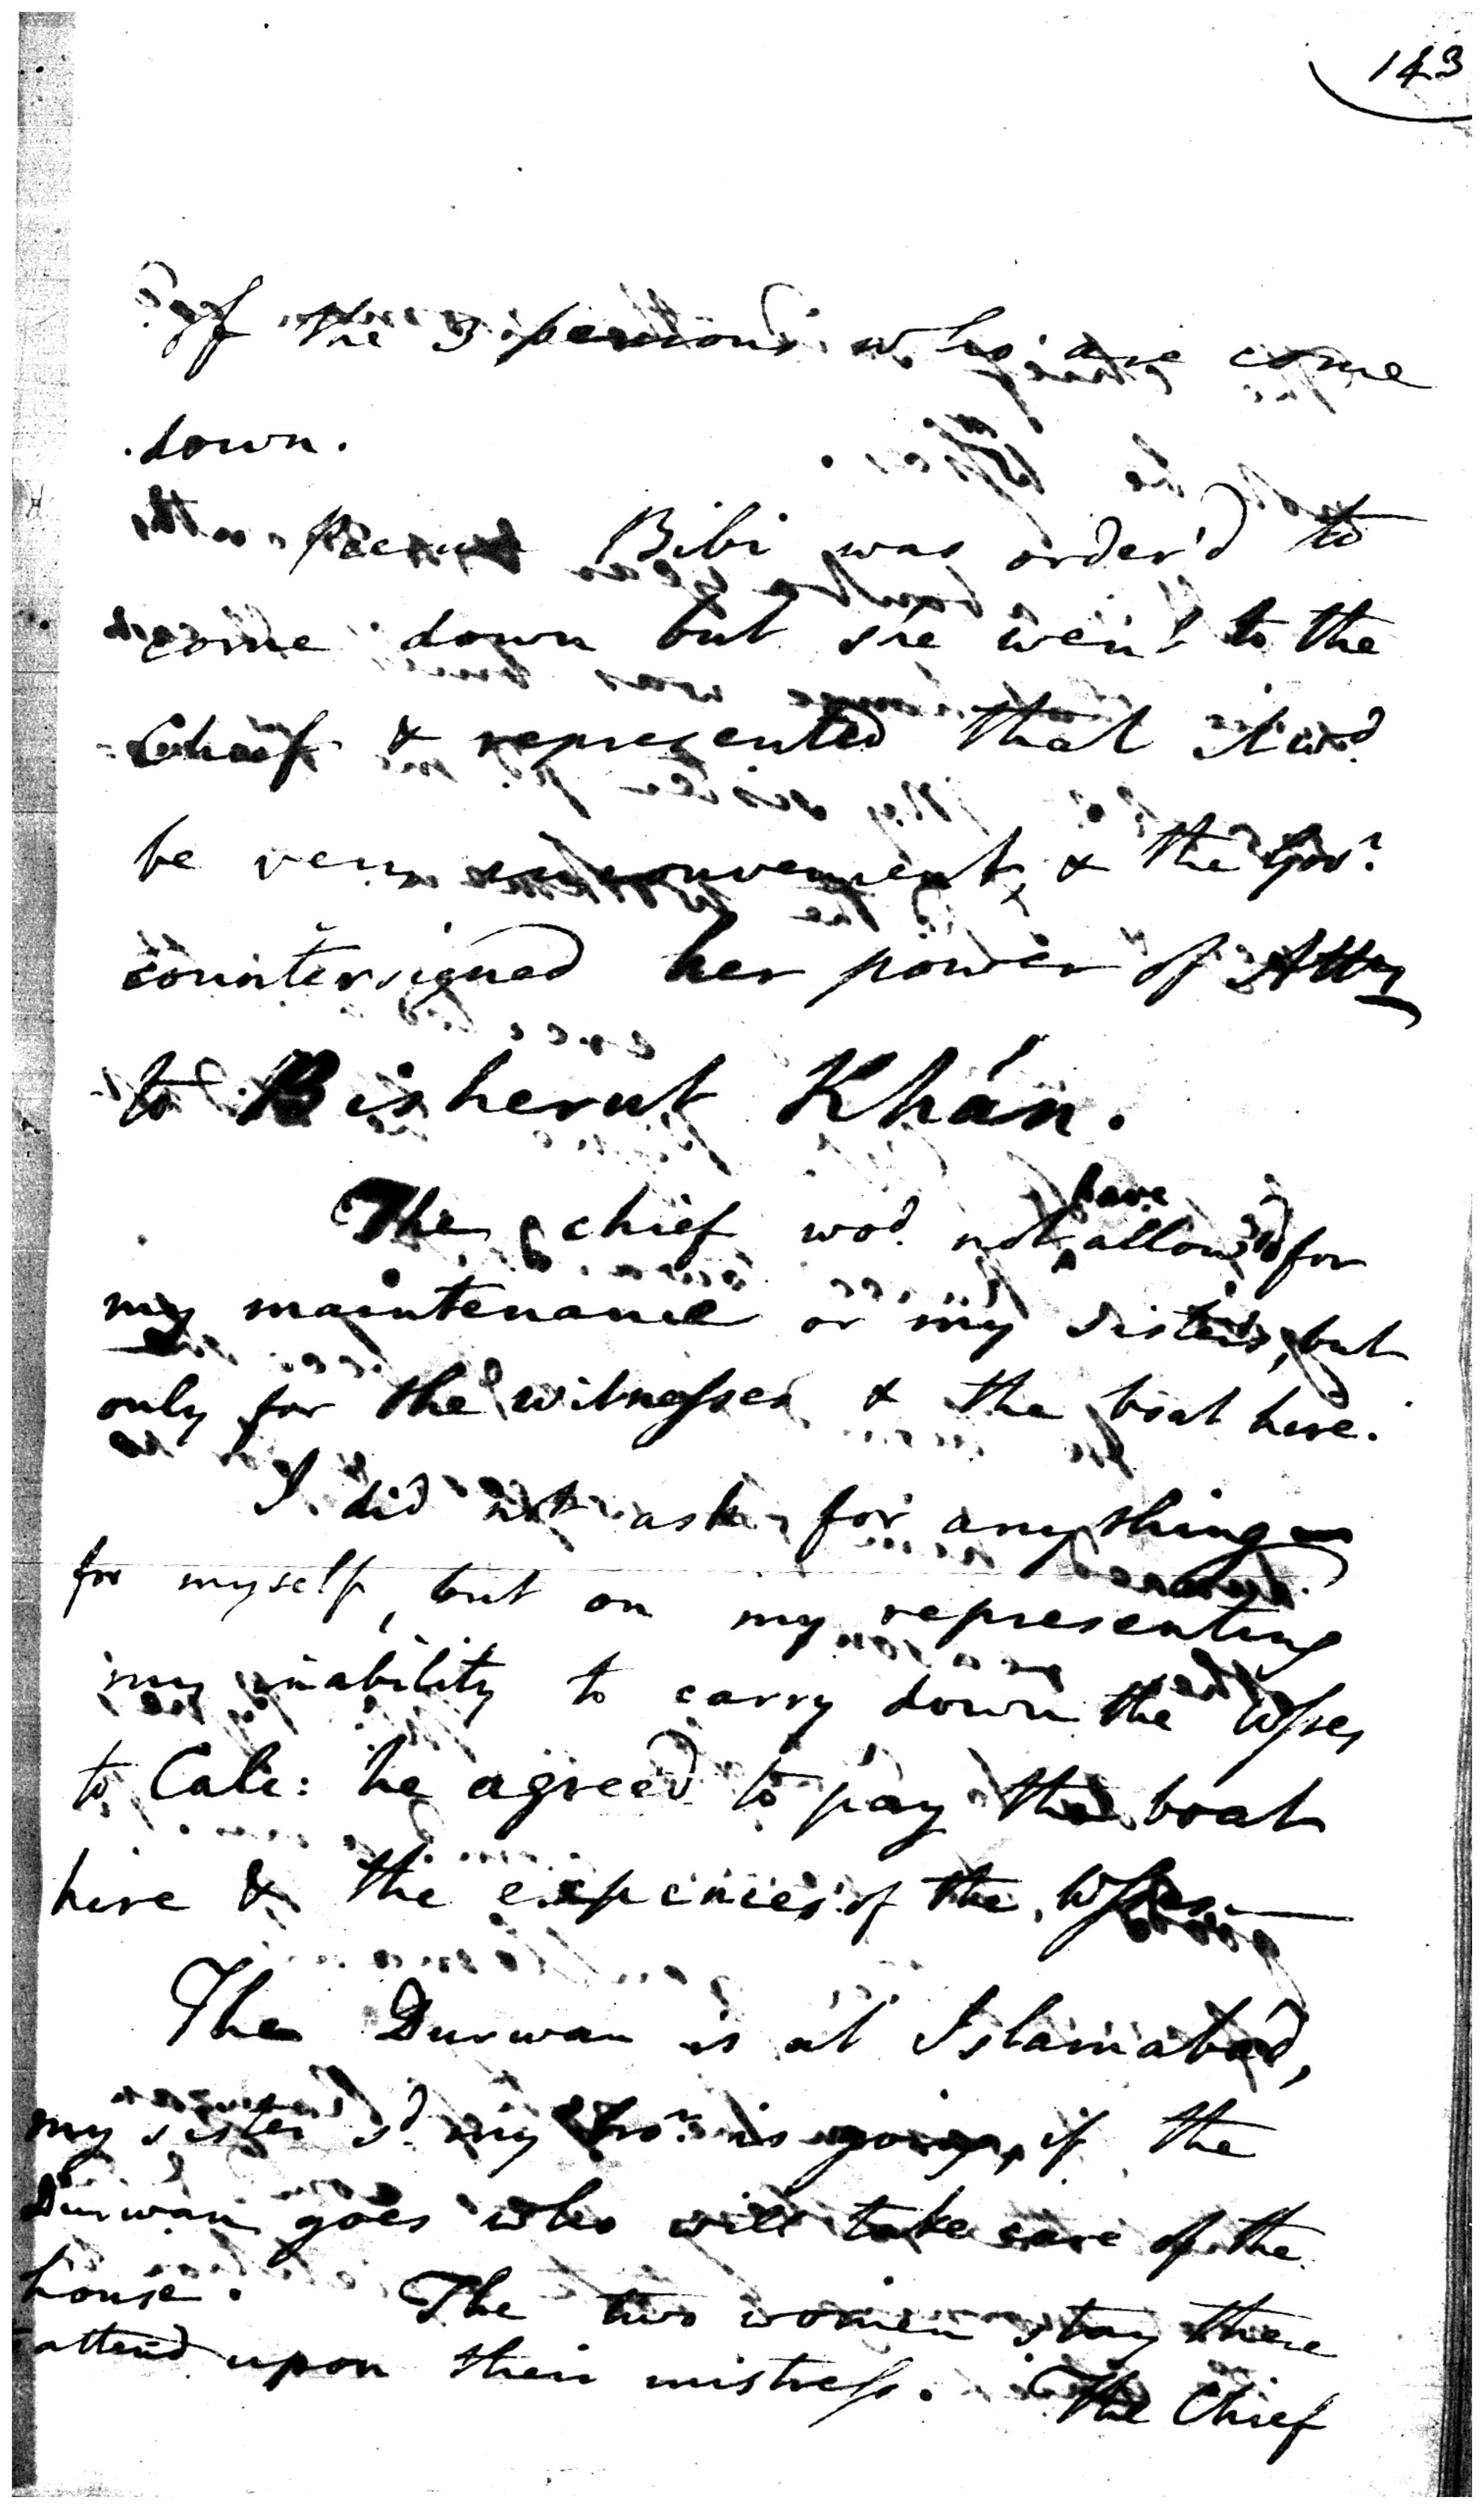 143
of the 3 persons who are come
down.
Bibi was order'd to
come down but she went to the
Chief & represented that it wod.
be very inconvenient & the Govr.
countersigned her power of Atty
to Bisherut Khán.
The chief wod. not have allow'd for
my maintenance or my sister's, but
only for the witnesses & the boat hire.
I did not ask for anything
for myself, but on my representing
my inability to carry down the Wses
to Calc: he agreed to pay the boat
hire & the expences of the Wses.—
The Durwan is at Islamabad,
my sister sd. my bror. is going, if the
Durwan goes who will take care of the
house. The two women stay there
attend upon their mistress. The Chief